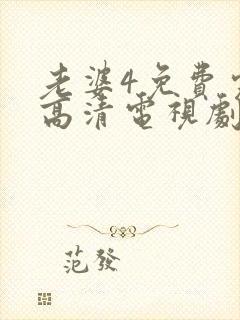 老婆4免費
高清電視劇
范發